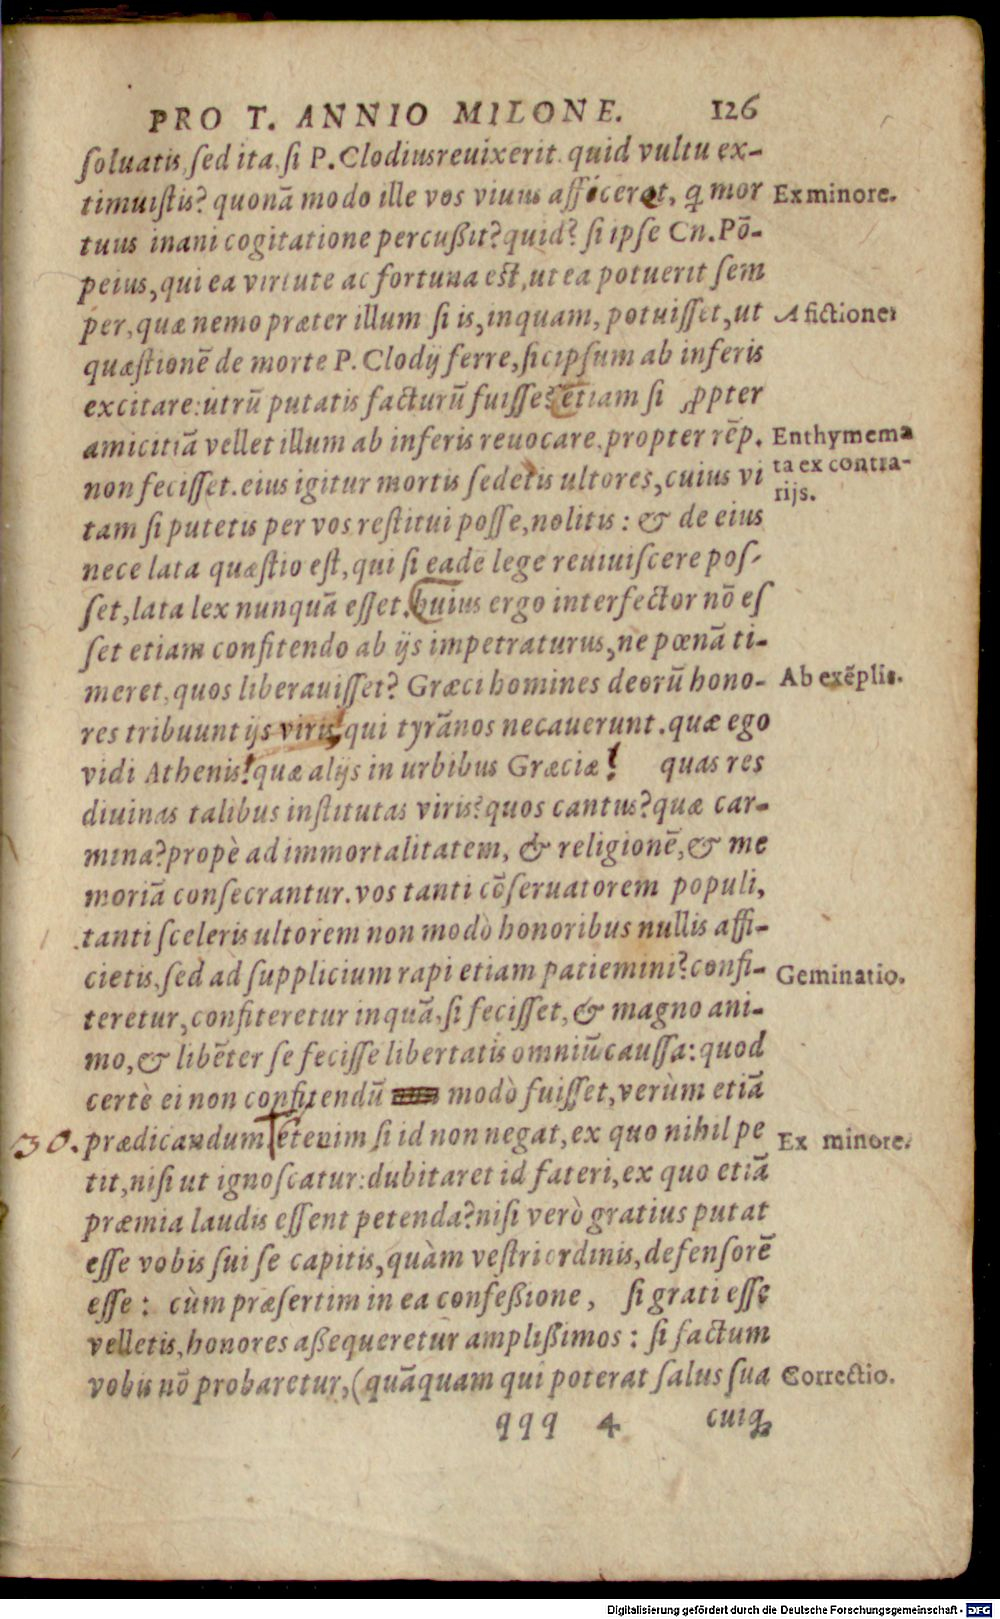 PRO T. ANNIO MILONE. 126
soluatis, sed ita, si P. Clodius reuixerit. quid vultu ex-
timuistis? quonā modo ille vos viuus afficeret, q̨ mor Ex minore.
tuus inani cogitatione percußit? quid? si ipse Cn. Pō-
peius, qui ea virtute ac fortuna est, ut ea potuerit sem
per, quæ nemo præter illum si is, inquam, potuisset, ut A fictione.
quæstionē de morte P. Clodij ferre, sic ipsum ab inferis
excitare: utrū putatis facturū fuisse? etiam si ꝓpter
amicitiā vellet illum ab inferis reuocare, propter rēp. Enthymema
non fecisset. eius igitur mortis sedetis ultores, cuius vi ta ex contra-
rijs.
tam si putetis per vos restitui posse, nolitis: & de eius
nece lata quæstio est, qui si eade lege reuiuiscere pos-
set, lata lex nunquā esset. huius ergo interfector nō es
set etiam confitendo ab ijs impetraturus, ne pœnā ti-
meret, quos liberauisset? Græci homines deorū hono- Ab exēplis.
res tribuunt ijs viris, qui tyrānos necauerunt. quæ ego
vidi Athenis! quæ alijs in urbibus Græciæ! quas res
diuinas talibus institutas viris? quos cantus? quæ car-
mina? propè ad immortalitatem, & religionē, & me
moriā consecrantur. vos tanti cōseruatorem populi,
tanti sceleris ultorem non modò honoribus nullis affi-
cietis, sed ad supplicium rapi etiam patiemini? confi- Geminatio.
teretur, confiteretur inquā, si fecisset, & magno ani-
mo, & libēter se fecisse libertatis omniū caussa: quod
certè ei non confitendū modò fuisset, verùm etiā
30. prædicandum. etenim si id non negat, ex quo nihil pe Ex minore.
tit, nisi ut ignoscatur: dubitaret id fateri, ex quo etiā
præmia laudis essent petenda? nisi verò gratius putat
esse vobis sui se capitis, quàm vestri ordinis, defensorē
esse: cùm præsertim in ea confeßione, si grati esse
velletis, honores aßequeretur amplißimos: si factum
vobis nō probaretur, (quāquam qui poterat salus sua Correctio.
qqq 4 cuiq;